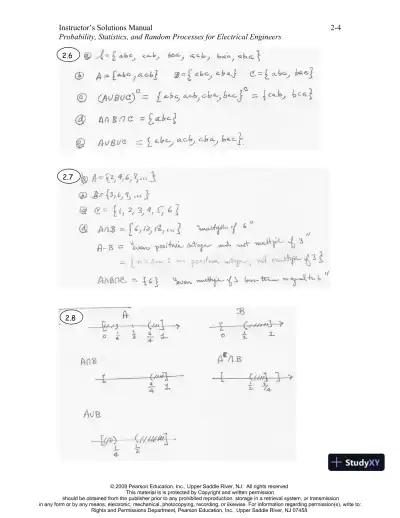 Instructor's Solutions Manual 2-4
Probability, Statistics, and Random Processes for Electrical Engineers
2.6 ⓐ S = {abc, cab, bca, acb, bac, cba}
ⓑ A = {abc, acb} B = {abc, cba} C = {abc, bac}
ⓒ (A∪B∪C)ᶜ = {abc, acb, cba, bac}ᶜ = {cab, bca}
ⓓ A∩B∩C = {abc}
ⓔ A∪B∪C = {abc, acb, cba, bac}
2.7 ⓐ A = {2, 4, 6, 8, ...}
B = {3, 6, 9, ...}
C = {1, 2, 3, 4, 5, 6}
ⓓ A∩B = {6, 12, 18, ...} "multiple of 6"
A-B = "even positive integer and not multiple of 3"
A∩B∩C = {6} "even multiple of 3 less than or equal to 6"
2.8 A B
0 1/4 1/2 3/4 1 0 1/2 1
A∩B Aᶜ∩B
3/4 1 1/2 3/4
A∪B
1/4 1/2
+ StudyXY
© 2009 Pearson Education, Inc., Upper Saddle River, NJ. All rights reserved
This material is protected by Copyright and written permission
should be obtained from the publisher prior to any prohibited reproduction, storage in a retrieval system, or transmission
in any form or by any means, electronic, mechanical, photocopying, recording, or likewise. For information regarding permission(s), write to:
Rights and Permissions Department, Pearson Education, Inc., Upper Saddle River, NJ 07458